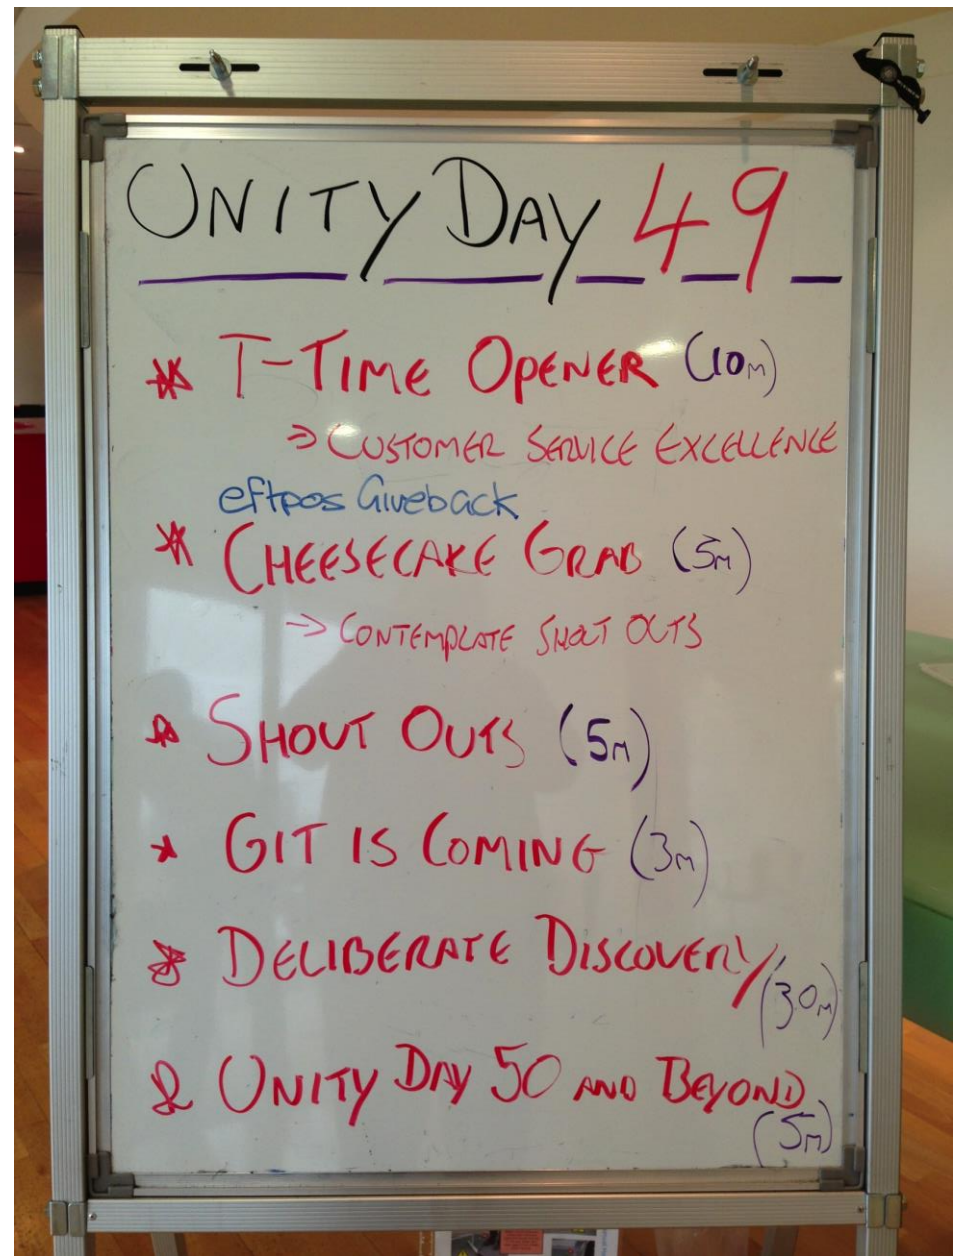 UNITY DAY 49
* T-TIME OPENER (10M)
→ CUSTOMER SERVICE EXCELLENCE
eftpos Giveback
* CHEESECAKE GRAB (5M)
→ CONTEMPLATE SHOUT OUTS
* SHOUT OUTS (5M)
* GIT IS COMING (3M)
* DELIBERATE DISCOVERY (30M)
* UNITY DAY 50 AND BEYOND (5M)